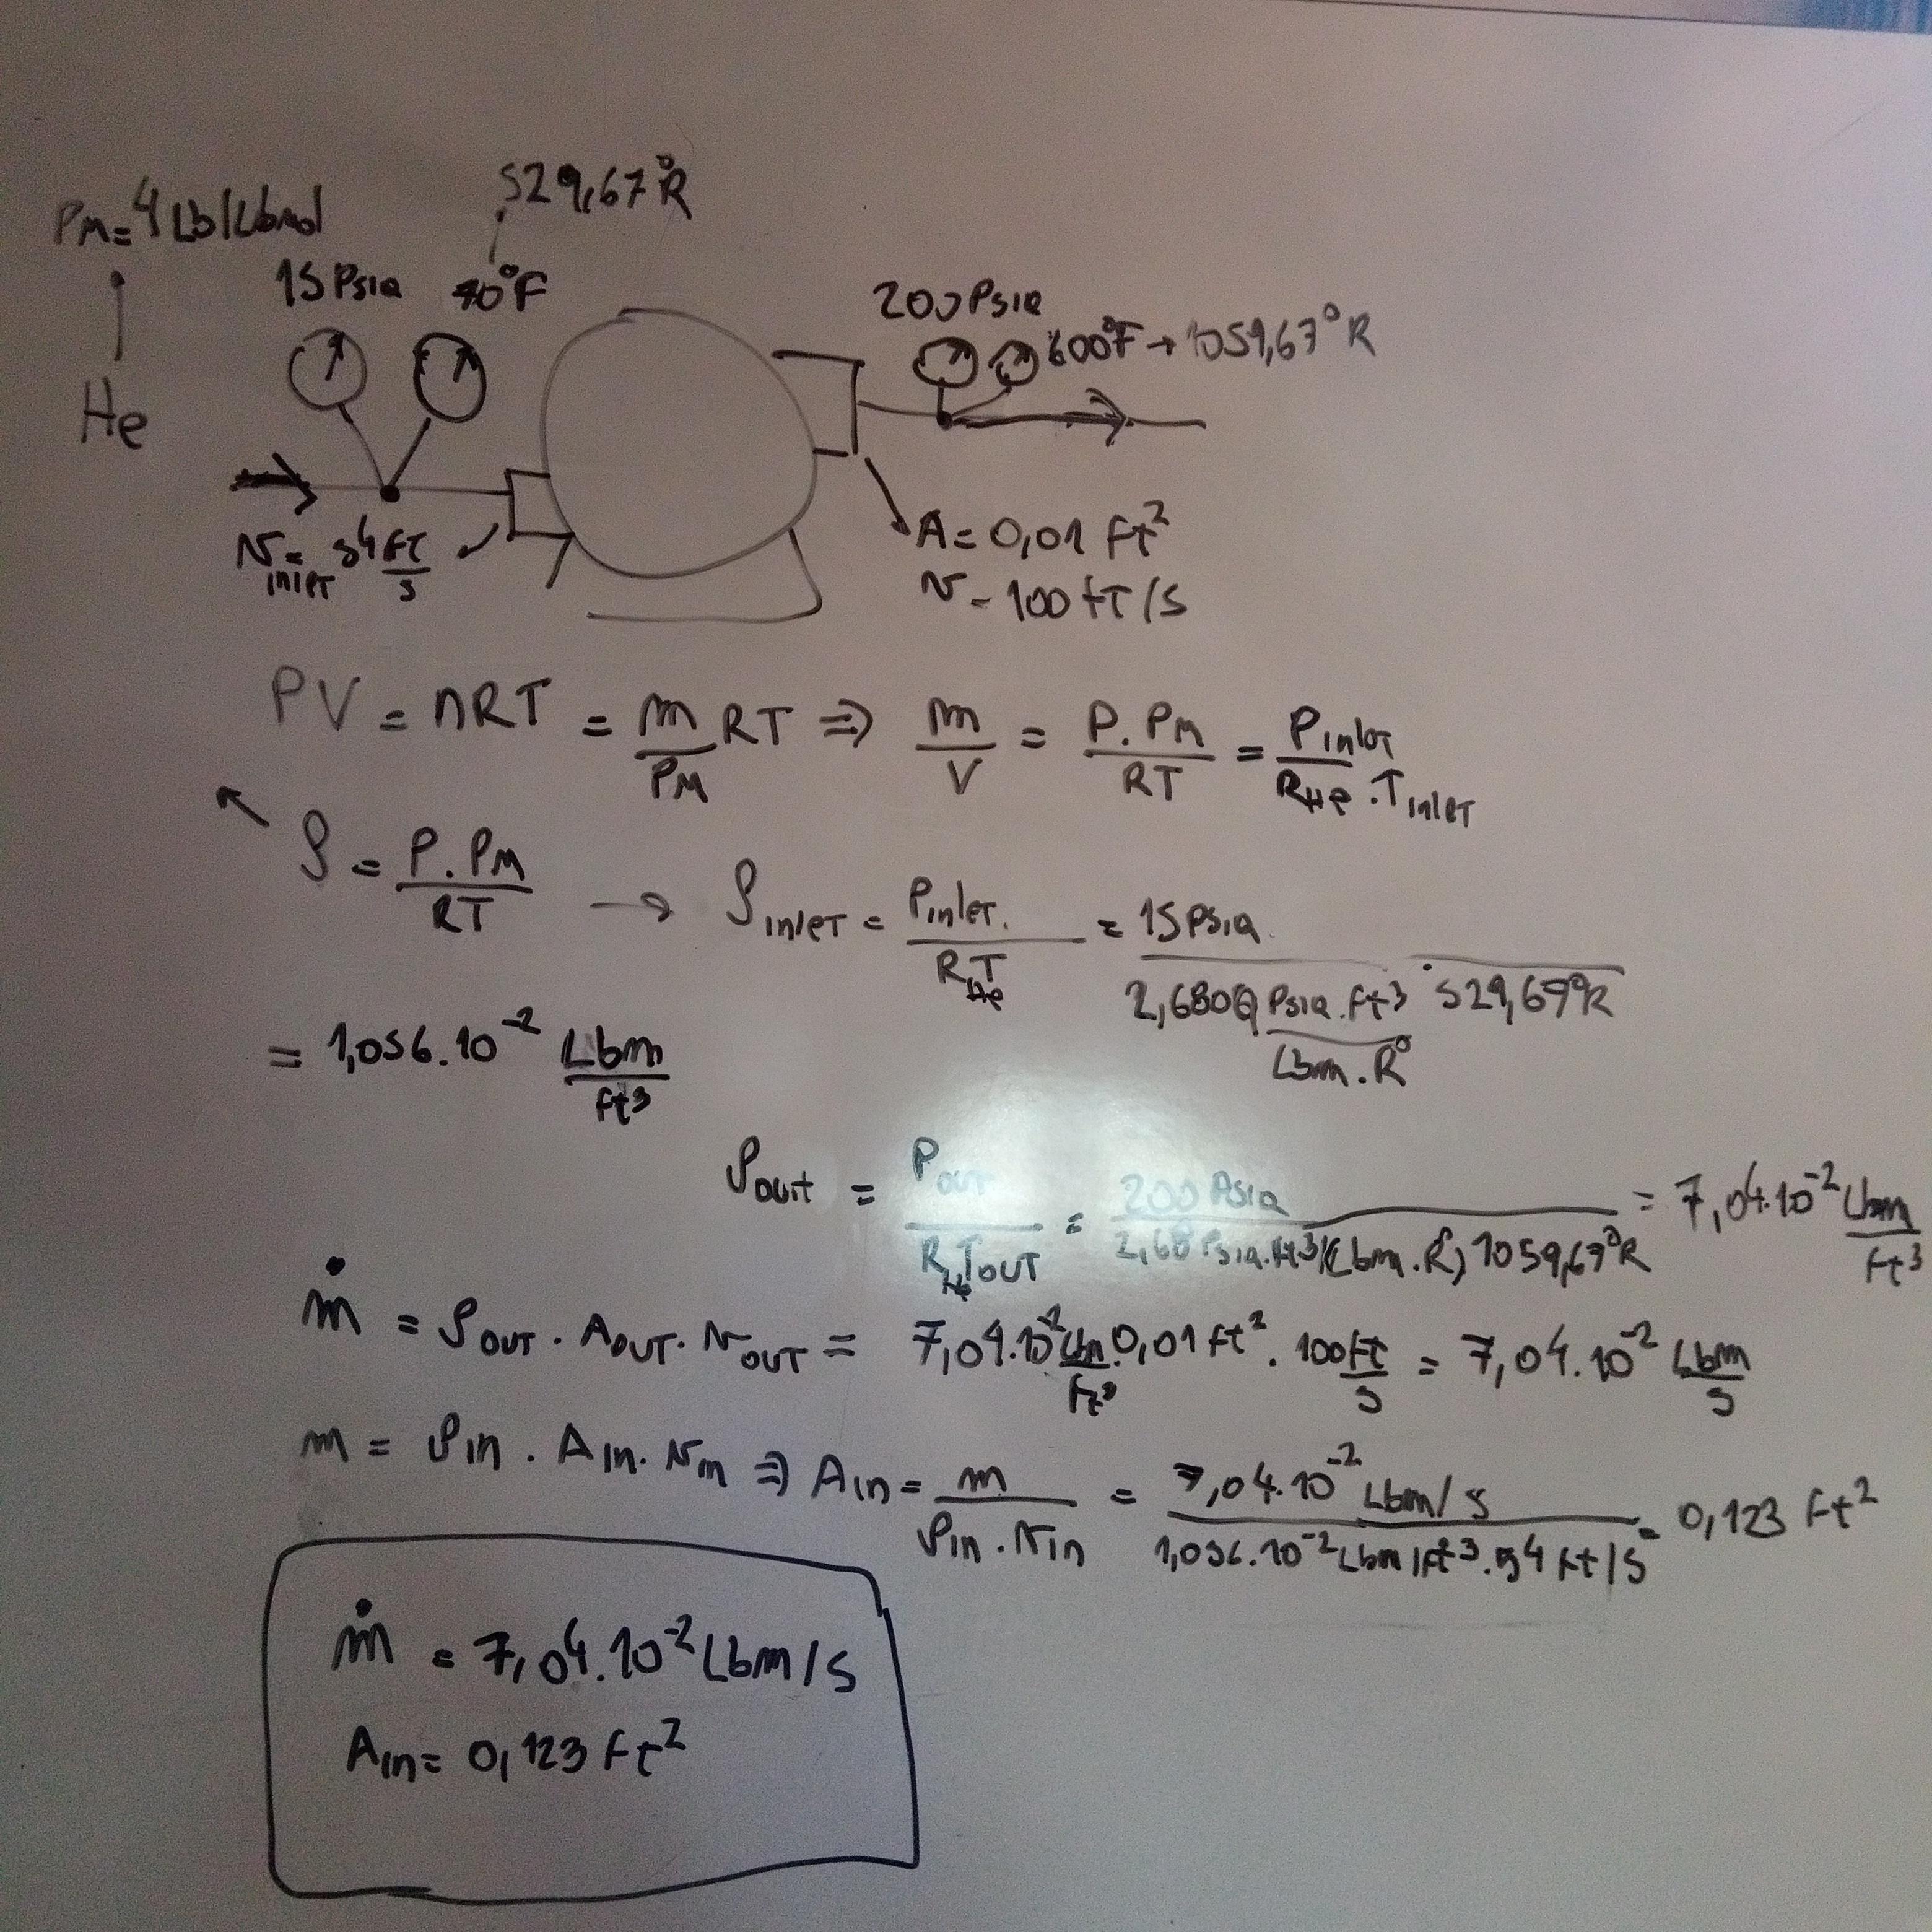 529,67°R
PM=4 Lb/Lbmol
15 Psia 70°F
200 Psia
600°F → 1059,67°R
He
A= 0,01 ft²
N = inlet 54 ft/s
N = 100 ft/s
PV = nRT = m/PM RT ⇒ m/V = P.PM/RT = Pinlet/RHe.Tinlet
ρ = P.PM/RT → ρinlet = Pinlet./RHeT = 15 Psia/2,6809 Psia.ft³/Lbm.R° . 529,67°R
= 1,056.10⁻² Lbm/ft³
ρout = Pout/RHeTout = 200 Psia/2,68 Psia.ft³/(Lbm.R°) 1059,67°R = 7,04.10⁻² Lbm/ft³
ṁ = ρout . Aout . Nout = 7,04.10⁻² Lbm/ft³ . 0,01 ft² . 100 ft/s = 7,04.10⁻² Lbm/s
m = ρin . Ain . Nin ⇒ Ain = m/ρin . Nin = 7,04.10⁻² Lbm/s/1,056.10⁻² Lbm/ft³ . 54 ft/s = 0,123 ft²
ṁ = 7,04.10⁻² Lbm/s
Ain = 0,123 ft²